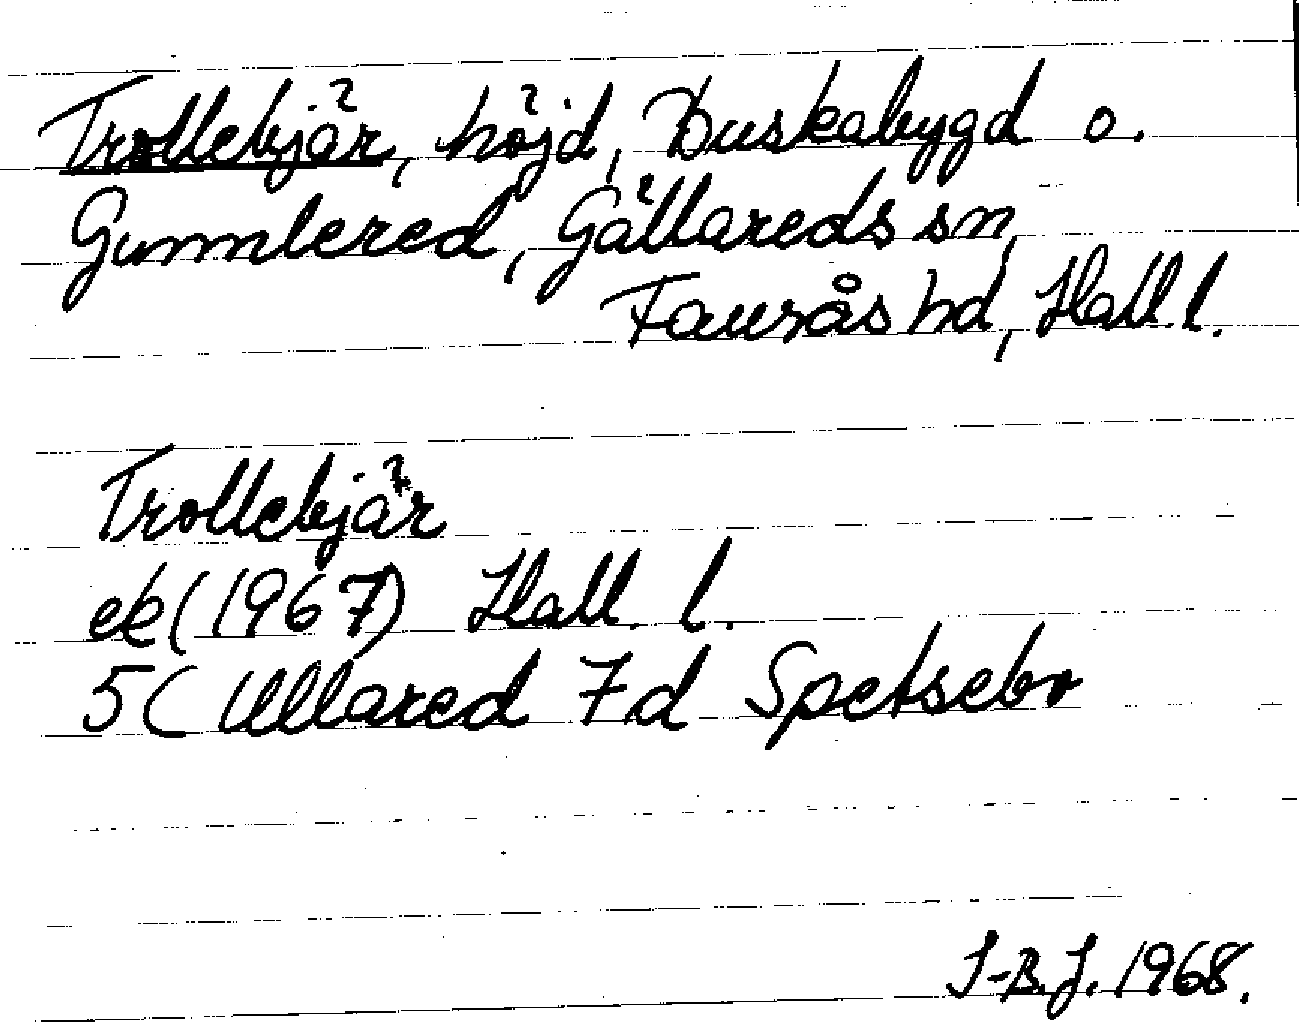 Trollebjär, höjd, Buskabygd o.
Gunnlered, Gällareds sn,
Faurås hd, Hall. l.
Trollebjär
ek (1967) Hall. l.
5C Ullared 7d Spetsebo
J-B.J. 1968.